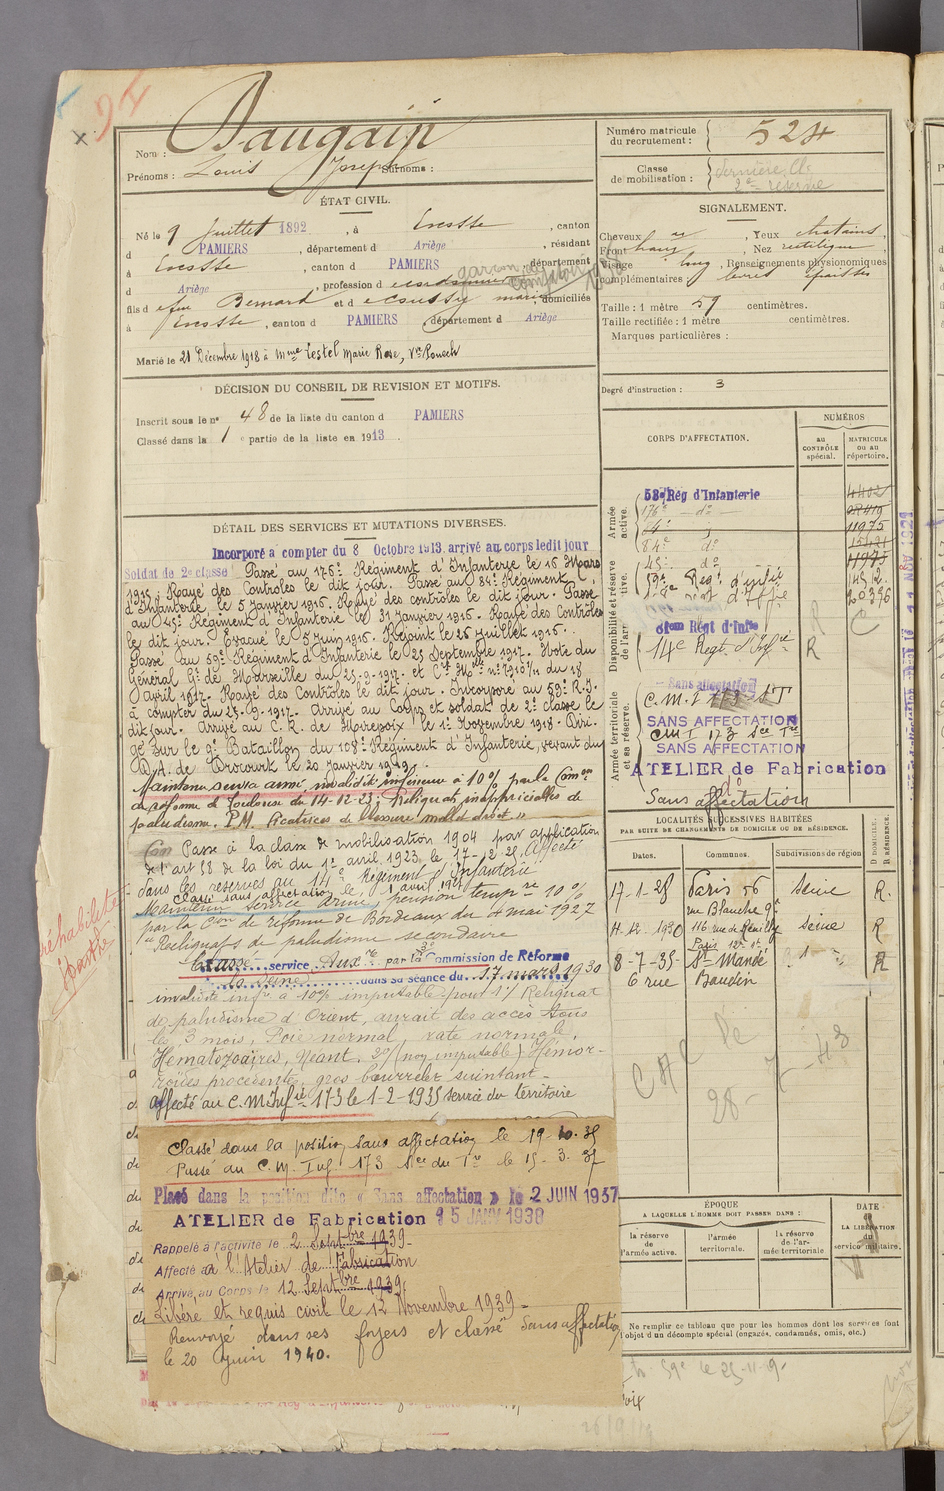 Nom : Daugain
Prénoms : Louis Joseph Surnoms :
ÉTAT CIVIL.
Né le 9 Juillet 1892, à Ecosse, canton
d PAMIERS, département d Ariège, résidant
à Ecosse, canton d PAMIERS, département
d Ariège, profession d
fils d feu Bernard et d domiciliés
à Ecosse, canton d PAMIERS, département d Ariège
Marié le 21 Décembre 1918 à Mme Lestel Marie Rose, Vve
DÉCISION DU CONSEIL DE REVISION ET MOTIFS.
Inscrit sous le n° 48 de la liste du canton d PAMIERS
Classé dans la 1e partie de la liste en 1913.
DÉTAIL DES SERVICES ET MUTATIONS DIVERSES.
Incorporé à compter du 8 Octobre 1913, arrivé au corps ledit jour
Soldat de 2e classe Passé au 176e Régiment d'Infanterie le 16 Mars
1915. Rayé des Contrôles le dit jour. Passé au 84e Régiment
d'Infanterie le 5 Janvier 1916. Rayé des contrôles le dit jour. Passé
au 45e Régiment d'Infanterie le 31 Janvier 1916. Rayé des Contrôles
le dit jour. Evacué le 5 Juin 1916. Rejoint le 26 Juillet 1916.
Passé au 59e Régiment d'Infanterie le 25 Septembre 1917. Note du
Général Gt de Marseille du 25-9-1917 et Cre Mlle n° du 18
avril 1917. Rayé des Contrôles le dit jour. Incorporé au 59e R.I.
à compter du 25-9-1917. Arrivé au Corps et soldat de 2e classe le
dit jour. Arrivé au C.R. de Mirepoix le 1er Novembre 1918. Diri-
gé sur le 9e Bataillon du 108e Régiment d'Infanterie, venant du
D.A. de Crocourt le 20 Janvier 1919.
Maintenu service armé, invalidité inférieure à 10% par la Comon
de réforme de Toulouse du 14-12-23; Reliquat inappréciables de
paludisme. P.M. Cicatrices de blessure mollet droit "
Passé à la classe de mobilisation 1904 par application
de l'art 58 de la loi du 1er avril 1923, le 17-12-25, Affecté
dans les réserves au 14e Régiment d'Infanterie
Classé sans affectation le 1 avril 1927
Maintenu service armé, pension tempre 10%
par la Con de réforme de Bordeaux du 4 mai 1927
"Reliquats de paludisme secondaire
réhabilité
Classé service Auxre par la 3e Commission de Réforme
de Seine dans sa séance du 17 mars 1930
invalidité infre à 10% imputable pour 1°/ Reliquat
de paludisme d'Orient, aurait des accès tous
les 3 mois, Foie normal rate normale,
Hématozoaires, Néant. 2°/ (non imputable) Hémor-
roïdes procidentes, gros bourrelet suintant -
affecté au C.M. Infie 173 le 1-2-1935 service du territoire
Classé dans la position sans affectation le 19-10-35
Passé au C.M. Inf. 173 Sce du Tre le 15-3-37
Placé dans la position dite « Sans affectation » le 2 JUIN 1937
ATELIER de Fabrication 15 JANV 1938
Rappelé à l'activité le 2 Septbre 1939-
Affecté à l'Atelier de Fabrication
Arrivé au Corps le 12 Septbre 1939.
Libéré et requis civil le 12 Novembre 1939-
Renvoyé dans ses foyers et classé Sans affectation
le 20 Juin 1940.
Numéro matricule du recrutement : 524
Classe de mobilisation : dernière Cl.
2e réserve
SIGNALEMENT.
Cheveux , Yeux chatains,
Front haut , Nez rectiligne,
Visage long, Renseignements physionomiques
complémentaires : lèvres épaisses
Taille : 1 mètre 59 centimètres.
Taille rectifiée : 1 mètre centimètres.
Marques particulières :
Degré d'instruction : 3
CORPS D'AFFECTATION.
NUMÉROS
au CONTRÔLE spécial.
MATRICULE ou au répertoire.
Armée active.
Disponibilité et réserve de l'armée active.
Armée territoriale et sa réserve.
53e Rég d'Infanterie
176e - do -
84e do 11975
45e do 11975
59e Régt d'infie 14512
20396
81eme Régt d'Infie
14e Régt. d'Infie R
Sans affectation
C.M.I 173 ST
SANS AFFECTATION
CMI 173 Sce Tre
SANS AFFECTATION
ATELIER de Fabrication
do
Sans affectation
LOCALITÉS SUCCESSIVES HABITÉES
PAR SUITE DE CHANGEMENTS DE DOMICILE OU DE RÉSIDENCE.
D DOMICILE.
R RÉSIDENCE.
Dates. Communes. Subdivisions de région
17-1-25 Paris 56 Seine R.
rue Blanche 9e
4-12-1930 116 rue de Reuilly Seine R
Paris 12e
8-7-35 St Mandé R
6 rue Baudin
ÉPOQUE
A LAQUELLE L'HOMME DOIT PASSER DANS :
la réserve de l'armée active.
l'armée territoriale.
la réserve de l'armée territoriale
DATE
DE LA LIBÉRATION du service militaire.
Ne remplir ce tableau que pour les hommes dont les services font
l'objet d'un décompte spécial (engagés, condamnés, omis, etc.)